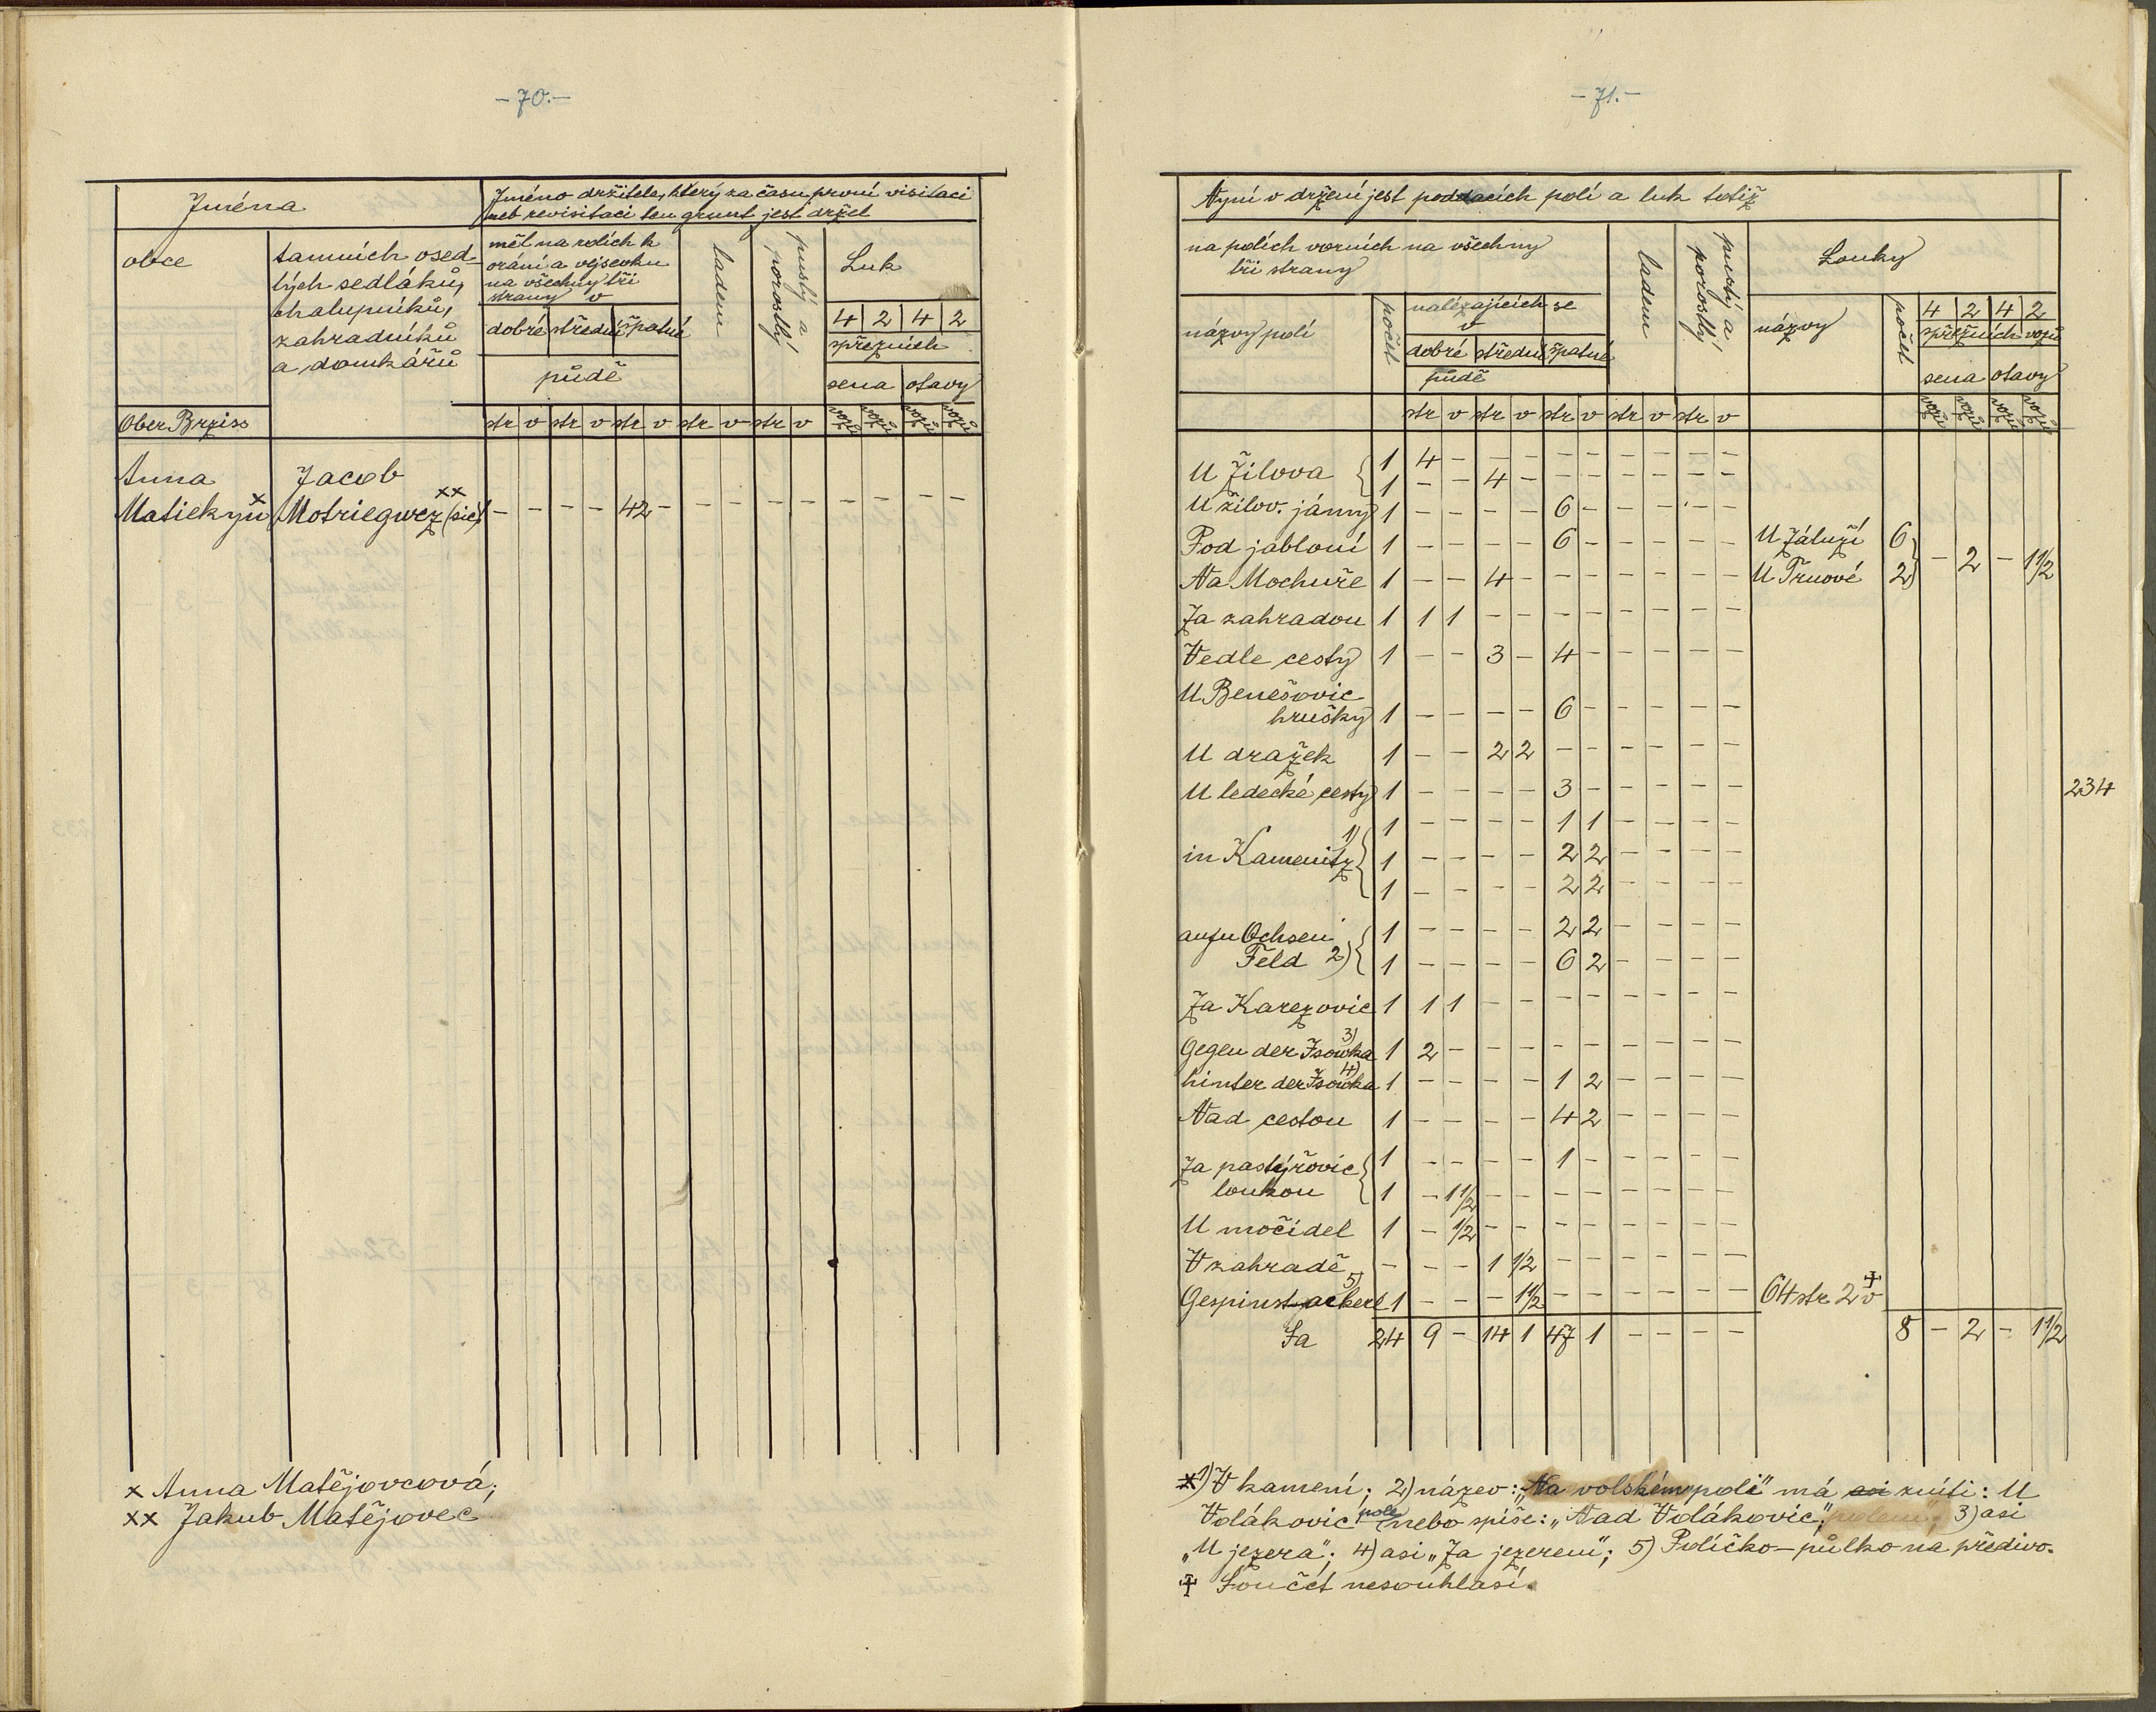 - 70. -
Jména
Jméno držitele, který za času první visitaci
neb revisitaci ten grunt jest držel
obce
tamních osed-
lých sedláků,
chalupníků,
zahradníků
a domkářů
měl na rolích k
orání a vejsevku
na všechny tři
strany v
dobré střední špatné
půdě
ladem
pustý a
porostlý
Luk
4 2 4 2
spřežních
sena otavy
Ober Brziss
str v str v str v str v str v vozů vozů vozů vozů
Anna Jacob
Matiekyň x Motriegwez xx (sic) - - - - 42 - - - - - - - - -
x Anna Matějovcová;
xx Jakub Matějovec
- 71. -
Nyní v držení jest poddacích polí a luk totiž
na polích vorních na všechny
tři strany
ladem
pustý a
porostlý
Louky
názvy polí
počet
nalézajících se
v
dobré střední špatné
půdě
názvy
počet
4 2 4 2
spřežních vozů
sena otavy
str v str v str v str v str v vozů vozů vozů vozů
U Žilova { 1 4 - - - - - - - - -
1 - - 4 - - - - - - -
U žilov. jámy 1 - - - - 6 - - - - -
Pod jabloní 1 - - - - 6 - - - - - U Záluží 6 }
Na Mochuře 1 - - 4 - - - - - - - U Trnové 2 } - 2 - 1 1/2
Za zahradou 1 1 1 - - - - - - - -
Vedle cesty 1 - - 3 - 4 - - - - -
U Benešovic
hrušky 1 - - - - 6 - - - - -
U dražek 1 - - 2 2 - - - - - -
U ledecké cesty 1 - - - - 3 - - - - -
234
1 - - - - 1 1 - - - -
in Kamenitz 1) { 1 - - - - 2 2 - - - -
1 - - - - 2 2 - - - -
aufn Ochsen { 1 - - - - 2 2 - - - -
Feld 2) 1 - - - - 6 2 - - - -
Za Karezovic 1 1 1 - - - - - - - -
Gegen der Isowka 3) 1 2 - - - - - - - - -
hinter der Isowka 4) 1 - - - - 1 2 - - - -
Nad cestou 1 - - - - 4 2 - - - -
Za pastýřovic { 1 - - - - 1 - - - - -
loukou 1 - 1 1/2 - - - - - - - -
U močidel 1 - 1/2 - - - - - - - -
V zahradě - - - 1 1/2 - - - - - -
Gespinst ackerl 5) 1 - - - 1 1/2 - - - - - - 64 str 2 v ‡
Sa 24 9 - 14 1 47 1 - - - - 8 - 2 - 1 1/2
1) V kamení; 2) název: „Na volském poli" má asi zníti: U
Volákovic pole nebo spíše: „Nad Volákovic" polem"; 3) asi
„U jezera"; 4) asi „Za jezerem"; 5) Políčko-půlko na předivo.
‡ Součet nesouhlasí.